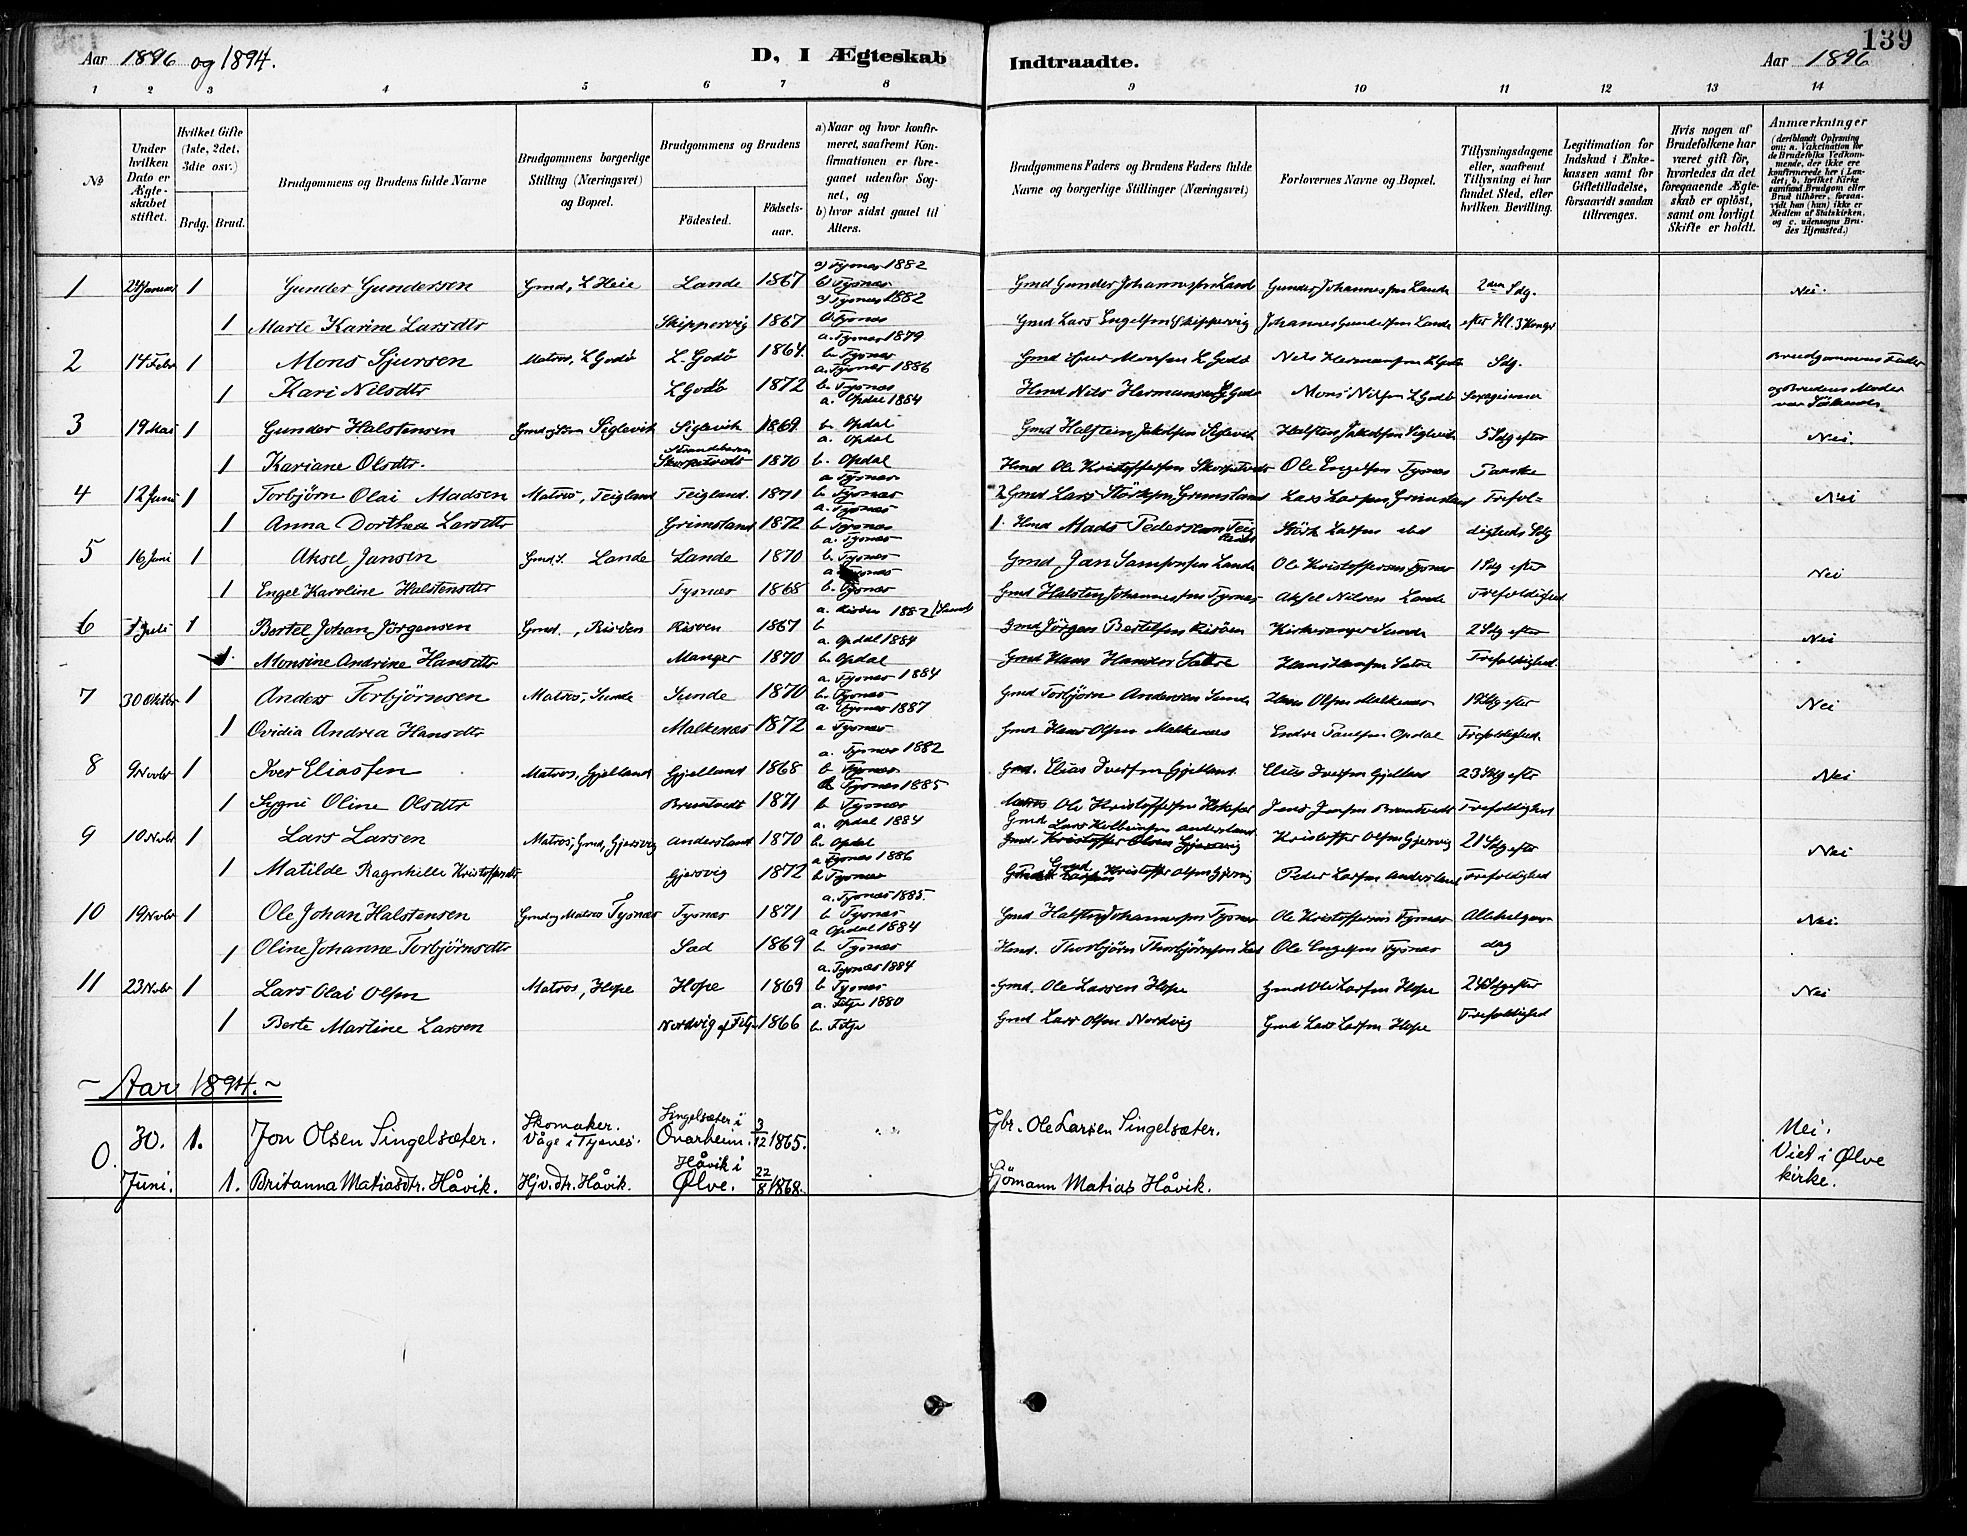 139
Aar 1896 og 1894.
D, I Ægteskab Indtraadte.
Aar 1896
1 2 3 4 5 6 7 8 9 10 11 12 13 14
No
Under hvilken Dato er Ægteskabet stiftet.
Hvilket Gifte (1ste, 2det, 3die osv.)
Brdg. Brud.
Brudgommens og Brudens fulde Navne
Brudgommens borgerlige Stilling (Næringsvei) og Bopæl.
Brudgommens og Brudens
Fødested.
Fødselsaar.
a) Naar og hvor konfirmeret, saafremt Konfirmationen er foregaaet udenfor Sognet, og
b) hvor sidst gaaet til Alters.
Brudgommens Faders og Brudens Faders fulde Navne og borgerlige Stillinger (Næringsvei)
Forlovernes Navne og Bopæl.
Tillysningsdagene eller, saafremt Tillysning ei har fundet Sted, efter hvilken Bevilling.
Legitimation for Indskud i Enkekassen samt for Giftetilladelse, forsaavidt saadan tiltrænges.
Hvis nogen af Brudefolkene har været gift før, hvorledes da det foregaaende Ægteskab er opløst, samt om lovligt Skifte er holdt.
Anmærkninger
(deriblandt Oplysning om: a. Vakcination for de Brudefolks Vedkommende, der ikke ere konfirmerede her i Landet; b. hvilket Kirkesamfund Brudgom eller Brud tilhører, forsaavidt han (hun) ikke er Medlem af Statskirken, og c. udensogns Brudes Hjemsted.)
a) Tysnæs 1882
1 24 Januar 1 Gunder Gundersen Gmd, L Heie Lande 1867 b) Tysnæs Gmd Gunder Johannessen Lande Gunder Johannessen Lande 2den Sdg. Nei.
a) Tysnæs 1882
1 Marte Karine Larsdtr Skippervig 1867 b Tysnæs Gmd Lars Engelsen Skippervig Johannes Gundersen Lande efter Hl. 3 Konger
a. Tysnæs 1879
2 14 Febr 1 Mons Sjursen Matros, L Godø L. Godø 1864. b. Tysnæs Gmd Sjur Monsen L Godø Nils Hermansen L Godø Sdg. Brudgommens Fader
a. Tysnæs 1886
1 Kari Nilsdtr L Godø 1872 b. Tysnæs Hmd Nils Hermansen L Godø Mons Nilsen L Godø Sexagesima og Brudens Moder var Søskende
a. Opdal 1884
3 19 Mai 1 Gunder Halstensen Siglevik Siglevik 1869 b. Opdal Gmd Halsten Jakobsen Siglevik Halsten Jakobsen Siglevik 5 Sdg efter Nei.
a. Opdal
1 Kariane Olsdtr. Strandebarm Skorpetvedt 1870 b. Opdal Hmd Ole Kristoffersen Skorpetvedt Ole Engelsen Tysnæs Paaske
a Tysnæs
4 12 Juni 1 Torbjörn Olai Madsen Matros, Teigland Teigland. 1871 b Tysnæs 2 Gmd Lars Störksen Grimstand Lars Larsen Grimstad Trefol- Nei
a. Tysnæs
1 Anna Dorthea Larsdtr Grimstand 1872 b Tysnæs 1. Hmd Mads Pedersen Teigland Störk Larsen ibd digheds Sdg
a. Tysnæs
5 16 Juni 1 Aksel Jansen Gmd. S. Lande Lande 1870 b. Tysnæs Gmd Jan Samsonsen Lande Ole Kristoffersen Tysnæs 1 Sdg efter Nei
a. Tysnæs
1 Engel Karoline Halstensdtr Tysnæs 1868 b. Tysnæs Gmd Halsten Johannessen Tysnæs Aksel Nilsen Lande Trefoldighed
6 1 Juli 1 Bertel Johan Jörgensen Gmd., Risöen Risöen 1867 b Gmd Jörgen Bertelsen Risöen Kirkesanger Sunde 2 Sdg efter Nei
a. Opdal 1884
1. Monsine Andrine Hansdtr Manger 1870 b. Opdal Gmd Hans Hansen Sætre Hans Hansen Sætre Trefoldighed.
a. Tysnæs 1884
7 30 Oktbr 1 Anders Torbjörnsen Matros, Sunde Sunde 1870 b. Tysnæs Gmd Torbjörn Andersen Sunde Hans Olsen Malkenæs 19 Sdg efter Nei
a. Tysnæs 1887
1 Ovidia Andrea Hansdtr Malkenæs 1872 a Tysnæs Gmd Hans Olsen Malkenæs Endre Paulsen Opdal Trefoldighed.
a. Tysnæs 1882
8 9 Novbr 1 Iver Eliassen Matros, Gjelland Gjelland 1868 b Tysnæs Gmd. Elias Iversen Gjelland. Elias Iversen Gjelland 23 Sdg efter Nei
a Tysnæs 1885
1 Sygni Oline Olsdtr Brentvedt 1871 b Tysnæs Matros Ole Kristoffersen Jens Jensen Brentvedt Trefoldighed
a. Opdal 1884
Gmd Lars Kolbeinsen Andersland.
9 10 Novbr 1 Lars Larsen Matros, Gmd, Gjersvig Andersland 1870 b. Opdal Gmd. Kristoffer Olsen Gjersvig Kristoffer Olsen Gjersvig 21 Sdg efter Nei
a Tysnæs 1886
1 Matilde Ragnhilde Kristoffersdtr Gjersvig 1872 b Tysnæs Gmd Kristoffer Olsen Gjersvig Peder Larsen Andersland Trefoldighed
a. Tysnæs 1885.
10 19 Novbr 1 Ole Johan Halstensen Gmd og Matros Tysnæs Tysnæs 1871 b Tysnæs Gmd Halsten Johannessen Tysnæs Ole Kristoffersen Tysnæs Allehelgens- Nei.
a Opdal 1884
1 Oline Johanne Torbjörnsdtr Lad 1869 b. Tysnæs Hmd. Thorbjörn Thorbjörnsen Lad Ole Engelsen Tysnæs dag
a. Tysnæs 1884
11 23 Novbr 1 Lars Olai Olsen Matros, Hope Hope 1869 b Tysnæs Gmd. Ole Larsen Hope Gmd Ole Larsen Hope 24 Sdg efter Nei
a. Fitje 1880
1 Berte Martine Larsen Nordvig af Fitje 1866 b. Fitje Gmd Lars Olsen Nordvig Gmd Lars Larsen Hope Trefoldighed
~ Aar 1894. ~
0. 30. 1. Jon Olsen Singelsæter. Skomaker. Våge i Tysnes. Singelsæter i Onarheim. 3/12 1865. Gbr. Ole Larsen Singelsæter. Nei.
Juni. 1. Britanna Matiasdtr. Håvik. Hjv. dtr. Håvik. Håvik i Ølve. 22/8 1868. Sjömann Matias Håvik. Viet i Ølve kirke.